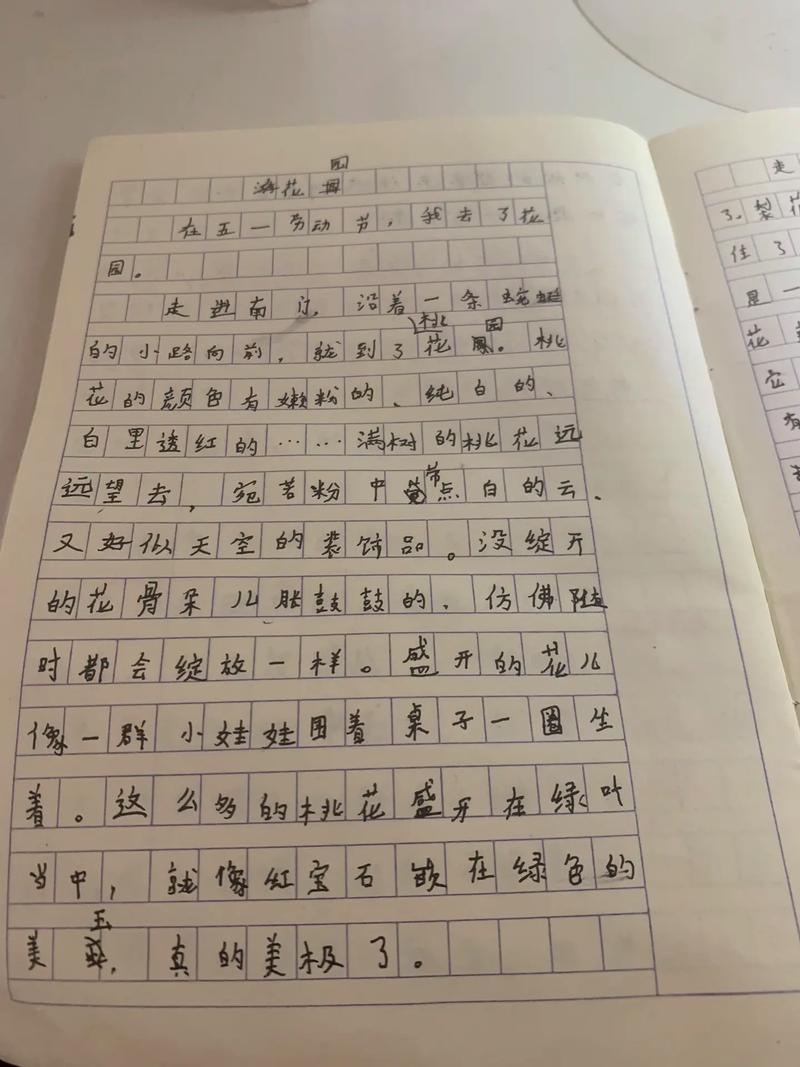 游花园
在五一劳动节，我去了花
园。
走进南门，沿着一条蜿蜒
的小路向前，就到了桃花园。桃
花的颜色有嫩粉的、纯白的、
白里透红的……满树的桃花远
远望去，宛若粉中带点白的云、
又好似天空的装饰品。没绽开
的花骨朵儿胀鼓鼓的、仿佛随
时都会绽放一样。盛开的花儿
像一群小娃娃围着桌子一圈坐
着。这么多的桃花盛开在绿叶
当中，就像红宝石嵌在绿色的
美玉，真的美极了。
走
了。梨花
住了
是一
花
它
有